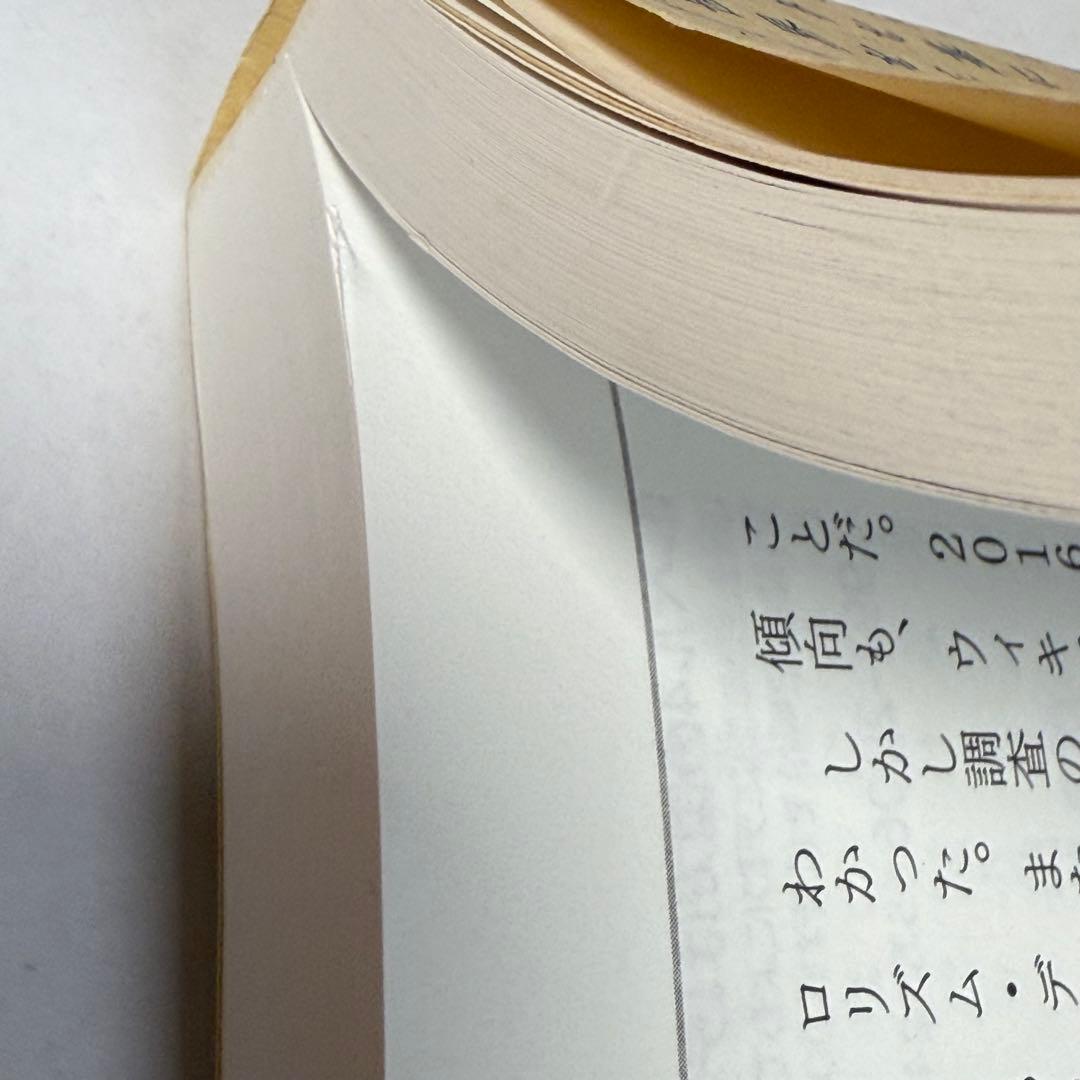 ことだ。2016
傾向も、ウィキ
しかし調査の
わかった。また
ロリズム・デ